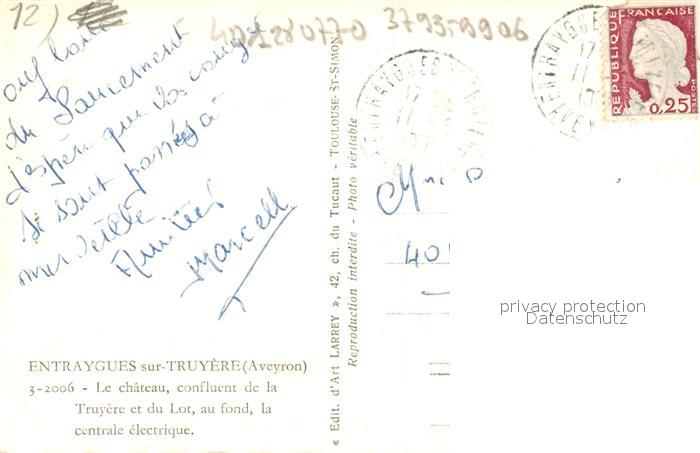 12)
401280770 3793-9906
du lancement
j'espère que les congés
se sont passés à
merveille
Amitiés
Marcelle
ENTRAYGUES-sur-TRUYÈRE (Aveyron)
3-2006 - Le château, confluent de la
Truyère et du Lot, au fond, la
centrale électrique.
« Edit. d'Art LARREY », 42, ch. du Tucaut - TOULOUSE-ST-SIMON
Reproduction interdite - Photo véritable
ENTRAYGUES
17
11
ENTRAYGUES
17
11
AVEYRON
REPUBLIQUE
FRANCAISE
POSTES
0,25
40
privacy protection
Datenschutz